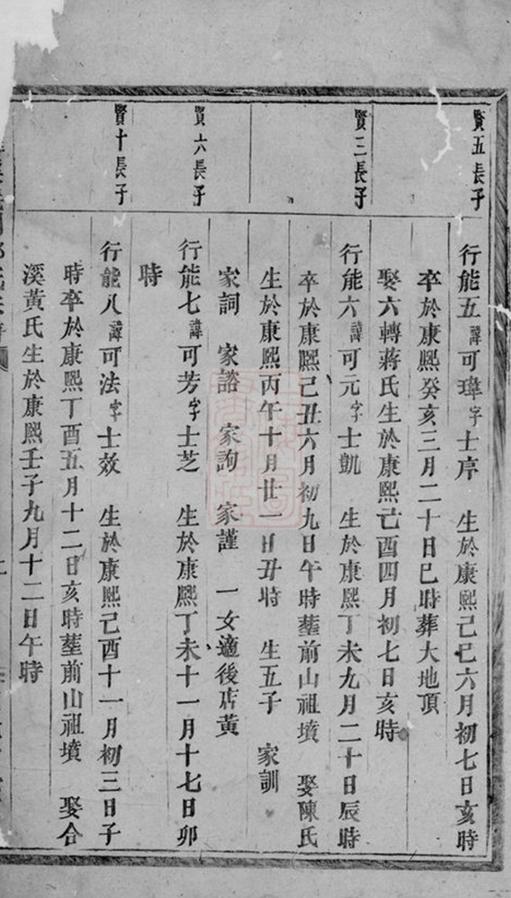 賢五長子
行能五諱可瑋字士序 生於康熙己巳六月初七日亥時
卒於康熙癸亥三月二十日巳時葬大地頂
娶六轉蔣氏生於康熙己酉四月初七日亥時
賢三長子
行能六諱可元字士凱 生於康熙丁未九月二十日辰時
卒於康熙己丑六月初九日午時塟前山祖墳 娶陳氏
生於康熙丙午十月廿一日丑時 生五子 家訓
家詞 家谿 家詢 家謹 一女適後店黃
賢六長子
行能七諱可芳字士芝 生於康熙丁未十一月十七日卯
時
賢十長子
行能八諱可法字士效 生於康熙己酉十一月初三日子
時卒於康熙丁酉五月十二日亥時塟前山祖墳 娶合
溪黃氏生於康熙壬子九月十二日午時